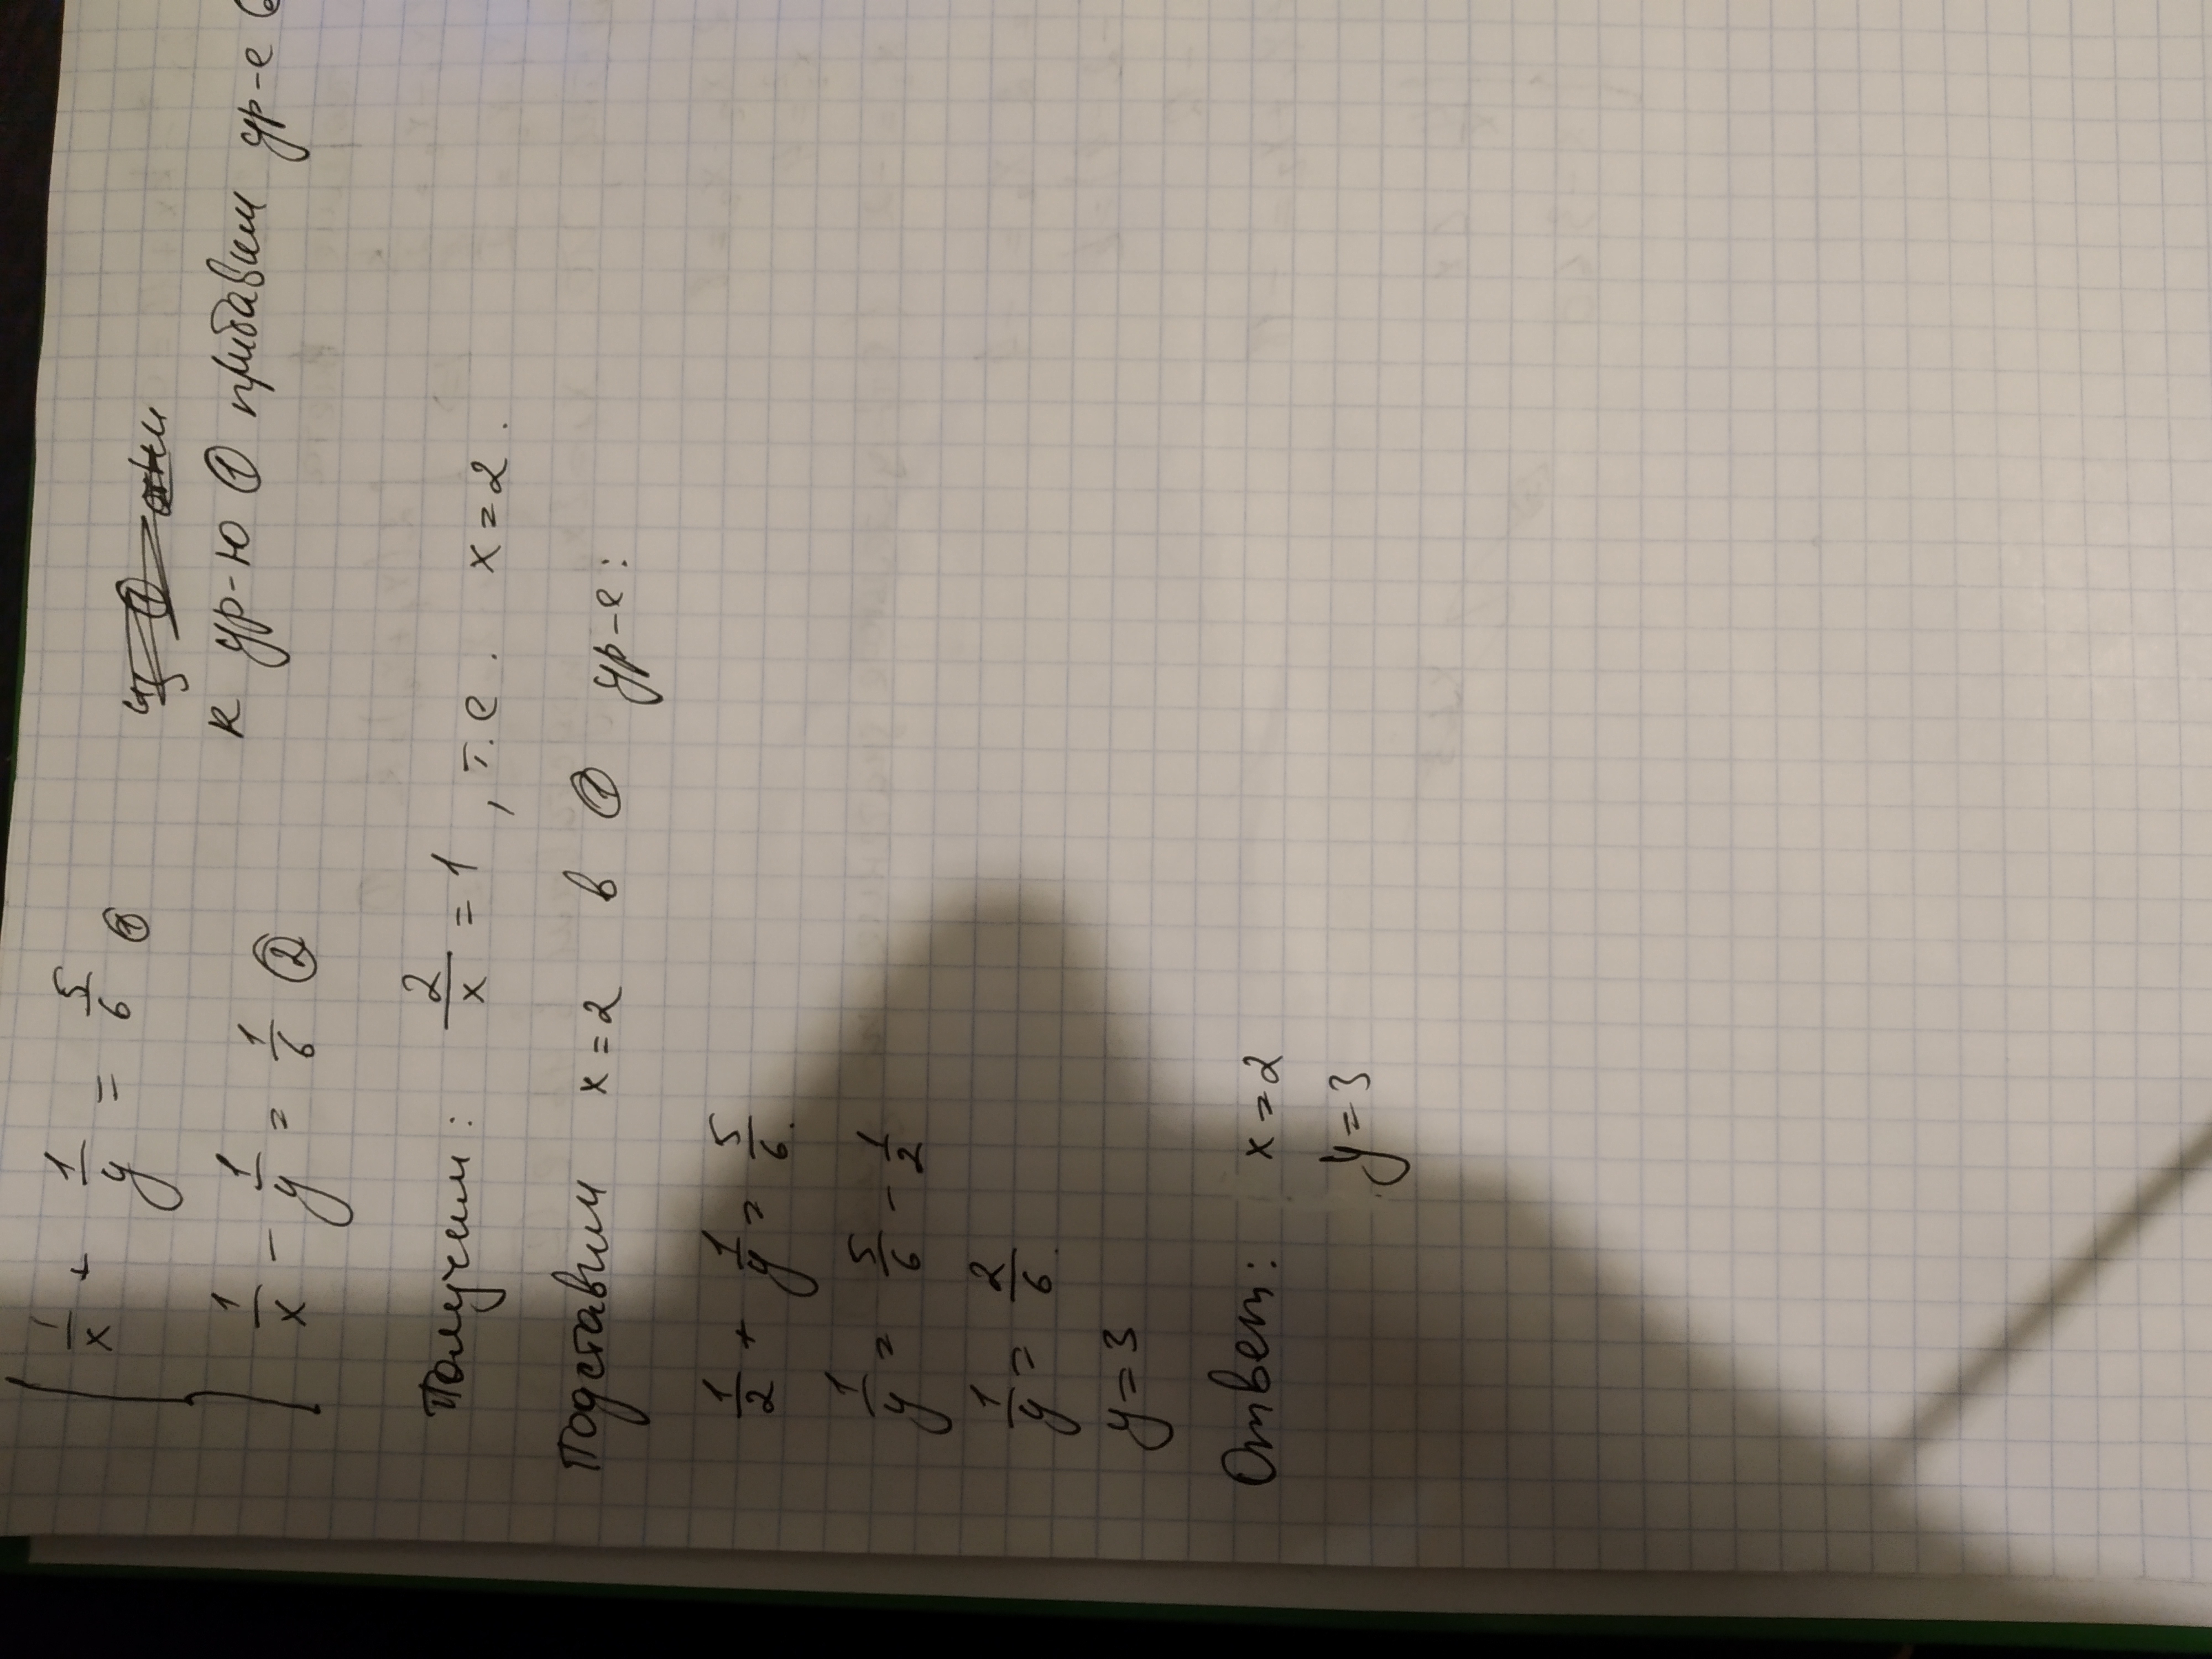 1/x + 1/y = 5/6 ①
1/x - 1/y = 1/6 ②
к ур-ю ① прибавим ур-е
Получим: 2/x = 1, т.е. x=2.
Подставим x=2 в ① ур-е:
1/2 + 1/y = 5/6.
1/y = 5/6 - 1/2
1/y = 2/6.
y=3
Ответ: x=2
y=3